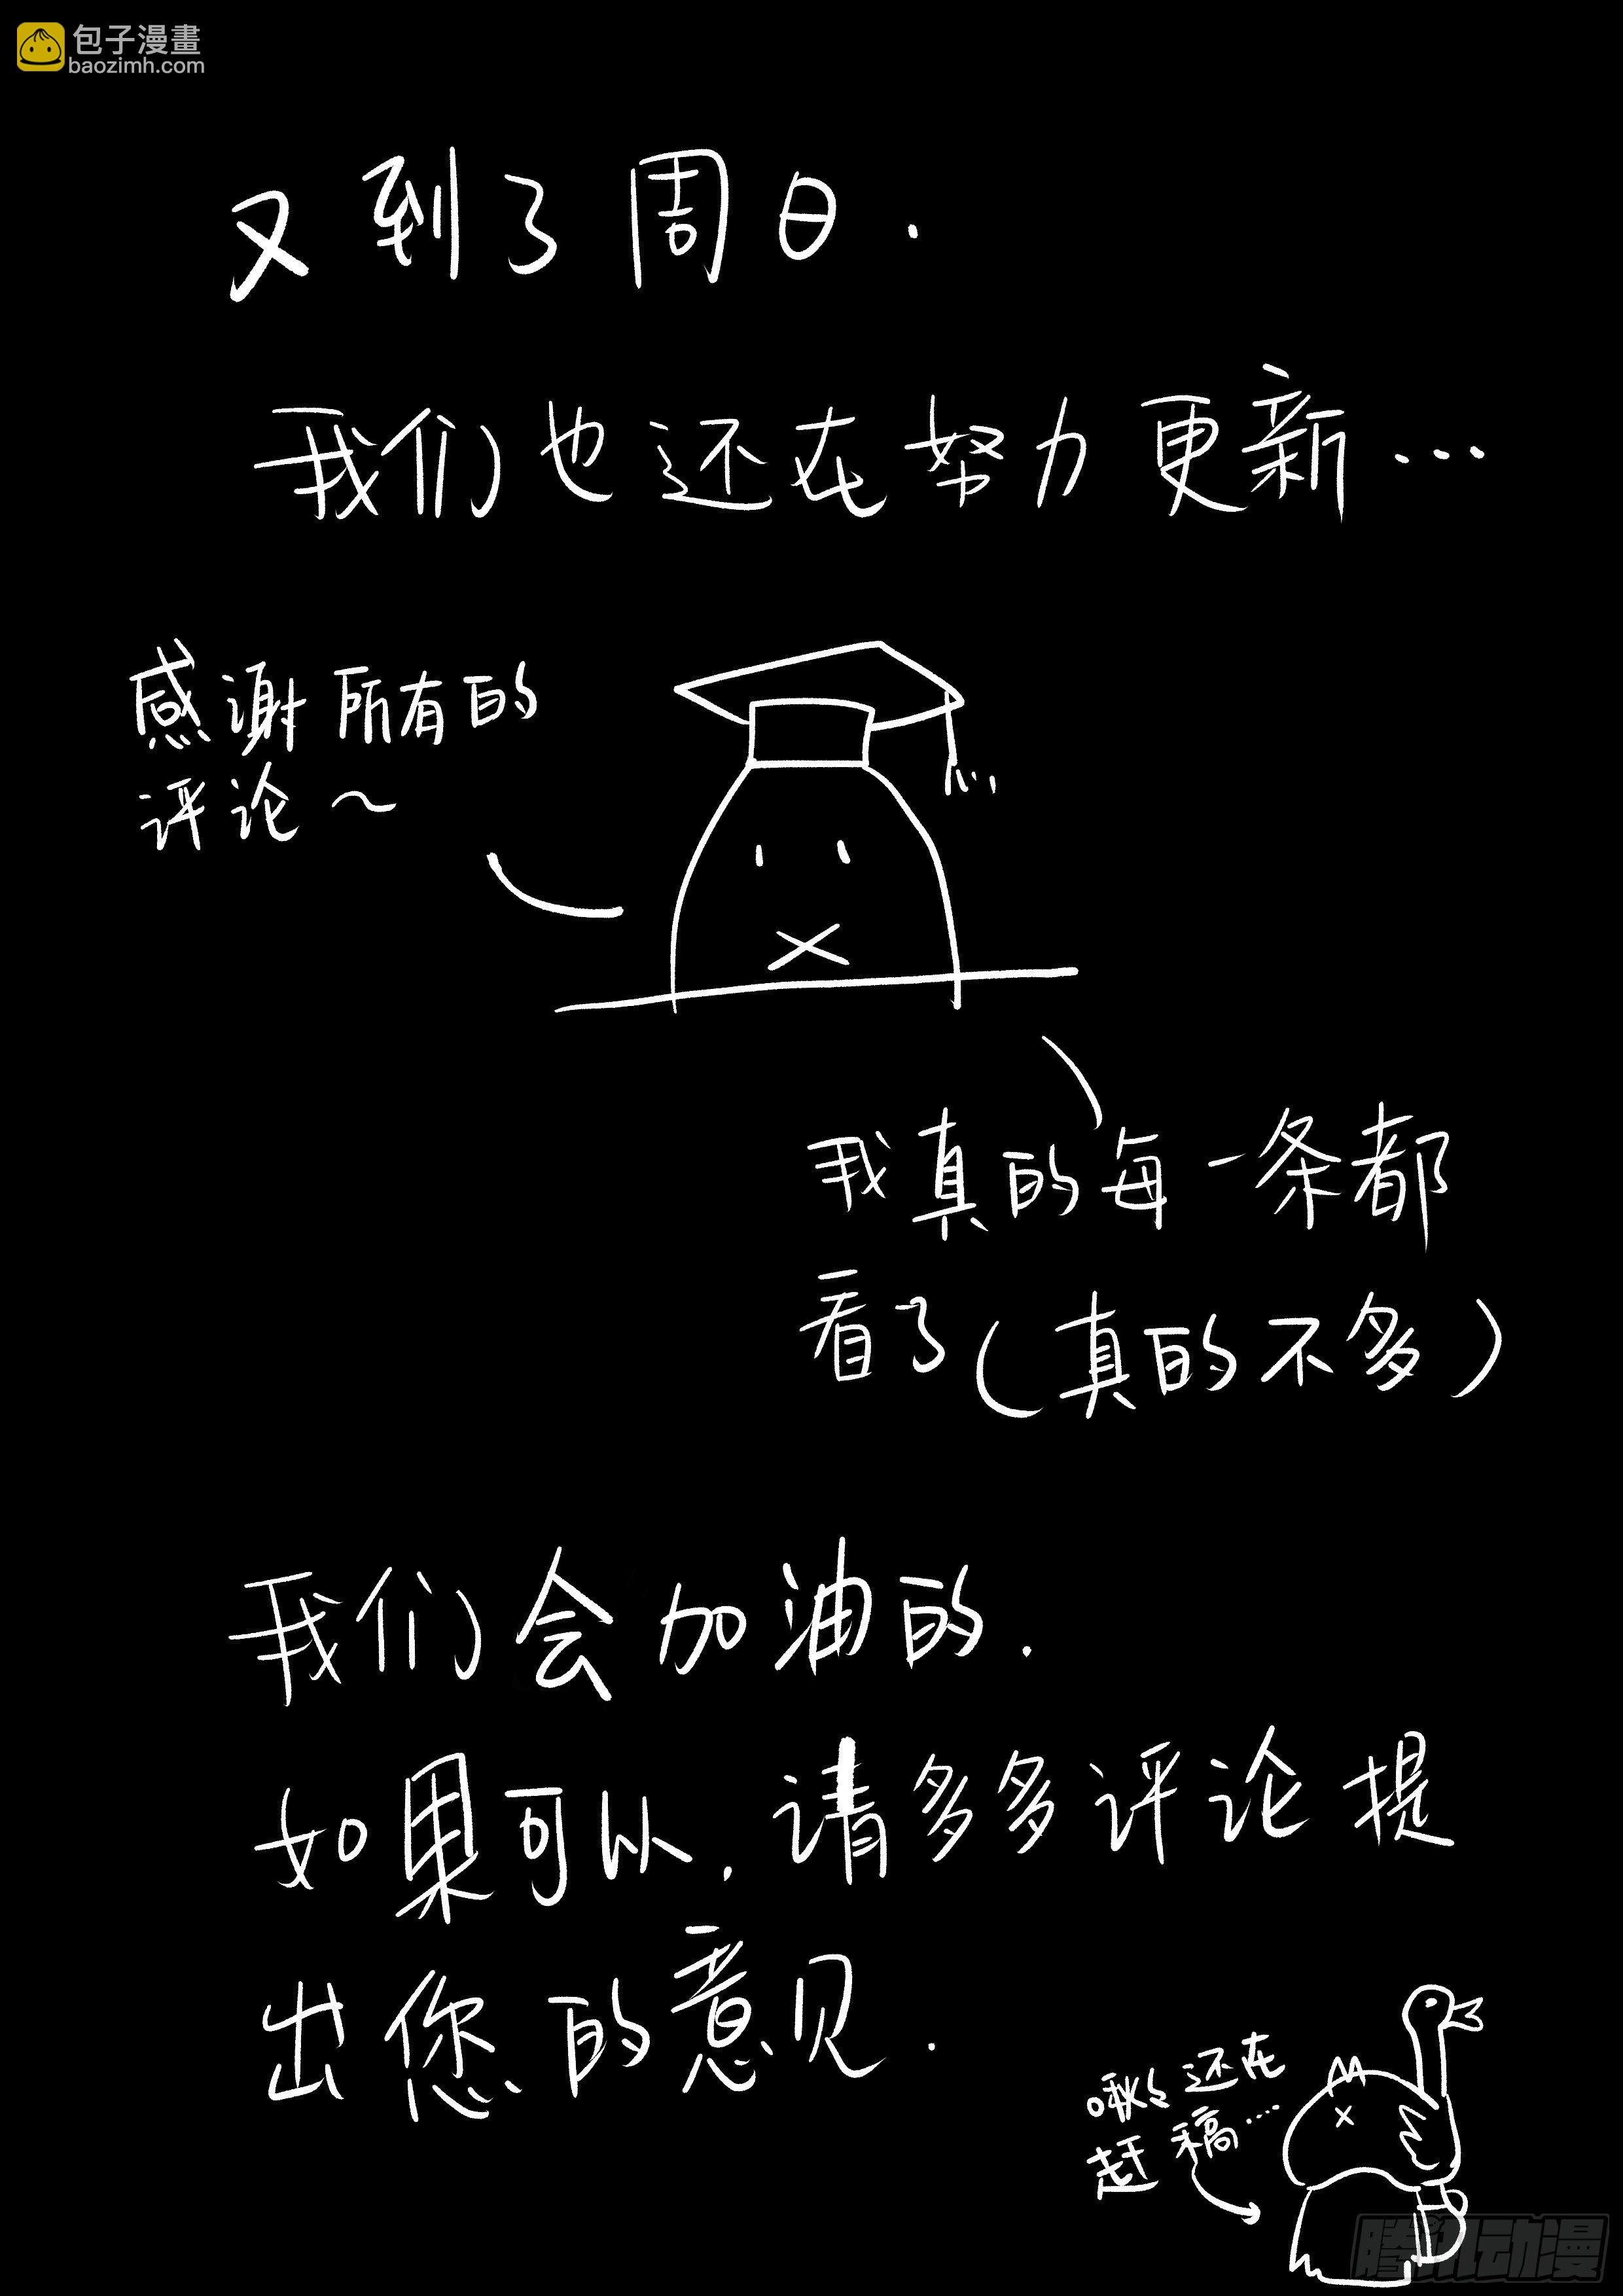 包子漫畫
baozimh.com
又到了周日.
我们也还在努力更新...
感谢所有的
评论～
我真的每一条都
看了(真的不多)
我们会加油的.
如果可以.请多多评论提
出您的意见.
啾么还在
赶稿...
腾讯动漫